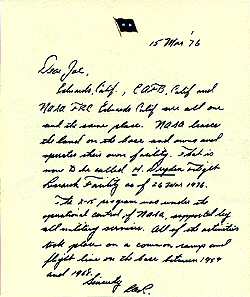 15 Mar '76
Dear Joe,
Edwards, Calif., EAFB, Calif and
NASA FRC Edwards Calif are all one
and the same place. NASA leases
the land on the base and owns and
operates their own facility. That is
now to be called H. Dryden Flight
Research Facility as of 26 Mar 1976.
The X-15 program was under the
operational control of NASA, supported by
all military services. All of its activities
took place on a common ramp and
flight line on the base between 1959
and 1968.
Sincerely